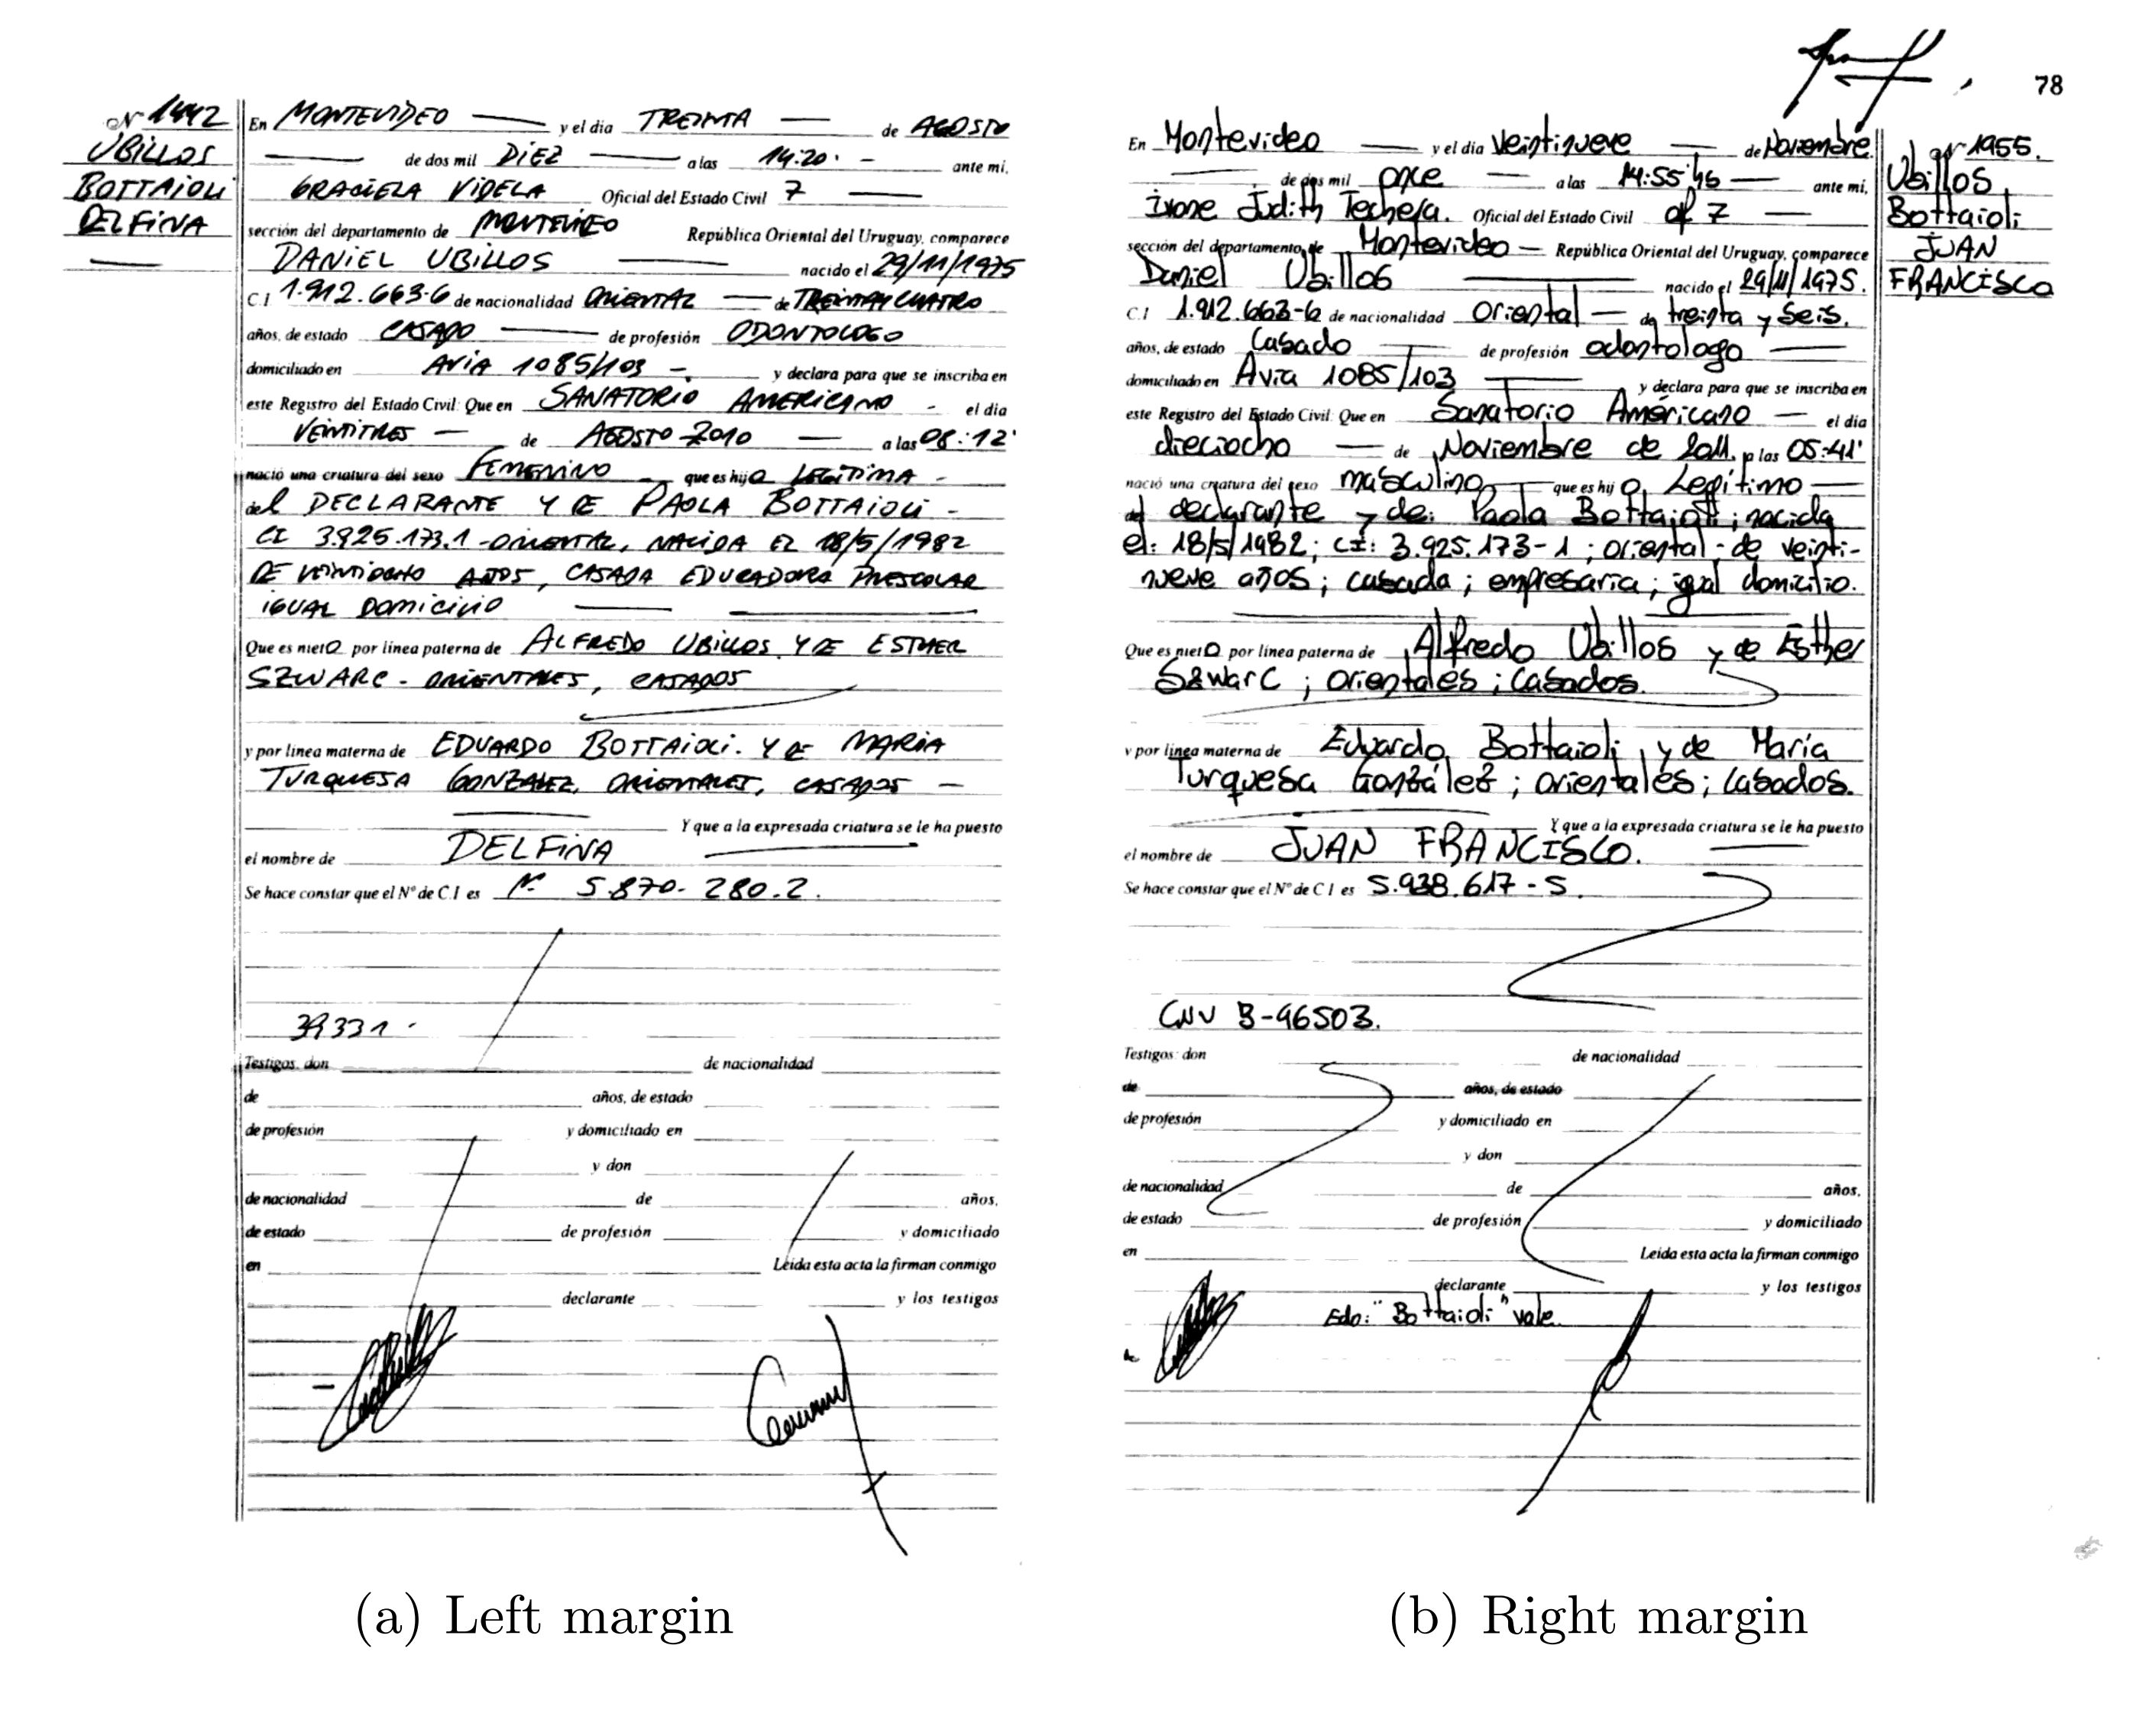 Nº 1442
UBILLOS
BOTTAIOLI
DELFINA
En MONTEVIDEO y el día TREINTA de AGOSTO
de dos mil DIEZ a las 14:20· - ante mí,
GRACIELA VIDELA Oficial del Estado Civil 7
sección del departamento de MONTEVIDEO República Oriental del Uruguay, comparece
DANIEL UBILLOS nacido el 29/11/1975
C.I 1.912.663-6 de nacionalidad ORIENTAL de TREINTA Y CUATRO
años, de estado CASADO de profesión ODONTOLOGO
domiciliado en AVIA 1085/103 -. y declara para que se inscriba en
este Registro del Estado Civil: Que en SANATORIO AMERICANO - el día
VEINTITRES - de AGOSTO 2010 a las 08:12'
nació una criatura del sexo FEMENINO que es hija LEGITIMA -
del DECLARANTE Y DE PAOLA BOTTAIOLI -
CI 3.925.173.1 - ORIENTAL, NACIDA EL 18/5/1982
DE VEINTIOCHO AÑOS, CASADA EDUCADORA PREESCOLAR
IGUAL DOMICILIO
Que es nieta por línea paterna de ALFREDO UBILLOS Y DE ESTHER
SZWARC - ORIENTALES, CASADOS
y por línea materna de EDUARDO BOTTAIOLI. Y DE MARIA
TURQUESA GONZALEZ, ORIENTALES, CASADOS -
Y que a la expresada criatura se le ha puesto
el nombre de DELFINA
Se hace constar que el Nº de C.I es Nº 5.870-280.2.
39331·
Testigos: don de nacionalidad
de años, de estado
de profesión y domiciliado en
y don
de nacionalidad de años,
de estado de profesión y domiciliado
en Leída esta acta la firman conmigo
declarante y los testigos
(a) Left margin
78
Nº 1955.
Ubillos
Bottaioli
JUAN
FRANCISCO
En Montevideo y el día Veintinueve de Noviembre
de dos mil once a las 14:55 hs ante mí,
Ivone Judith Techera. Oficial del Estado Civil of 7
sección del departamento de Montevideo República Oriental del Uruguay, comparece
Daniel Ubillos nacido el 29/11/1975.
C.I 1.912.663-6 de nacionalidad Oriental de treinta y seis.
años, de estado Casado de profesión odontologo
domiciliado en Avia 1085/103 y declara para que se inscriba en
este Registro del Estado Civil: Que en Sanatorio Américano el día
dieciocho de Noviembre de 2011. a las 05:41'
nació una criatura del sexo masculino que es hijo Legítimo
del declarante y de: Paola Bottaioli; nacida
el: 18/5/1982; CI: 3.925.173-1; oriental; de veinti-
nueve años; casada; empresaria; igual domicilio.
Que es nieto por línea paterna de Alfredo Ubillos y de Esther
Szwarc; orientales; casados.
y por línea materna de Eduardo Bottaioli y de María
Turquesa González; orientales; casados.
Y que a la expresada criatura se le ha puesto
el nombre de JUAN FRANCISCO.
Se hace constar que el Nº de C I es 5.938.617-5.
CNV B-96503.
Testigos: don de nacionalidad
de años, de estado
de profesión y domiciliado en
y don
de nacionalidad de años,
de estado de profesión y domiciliado
en Leída esta acta la firman conmigo
declarante y los testigos
Edo: "Bottaioli" vale.
(b) Right margin